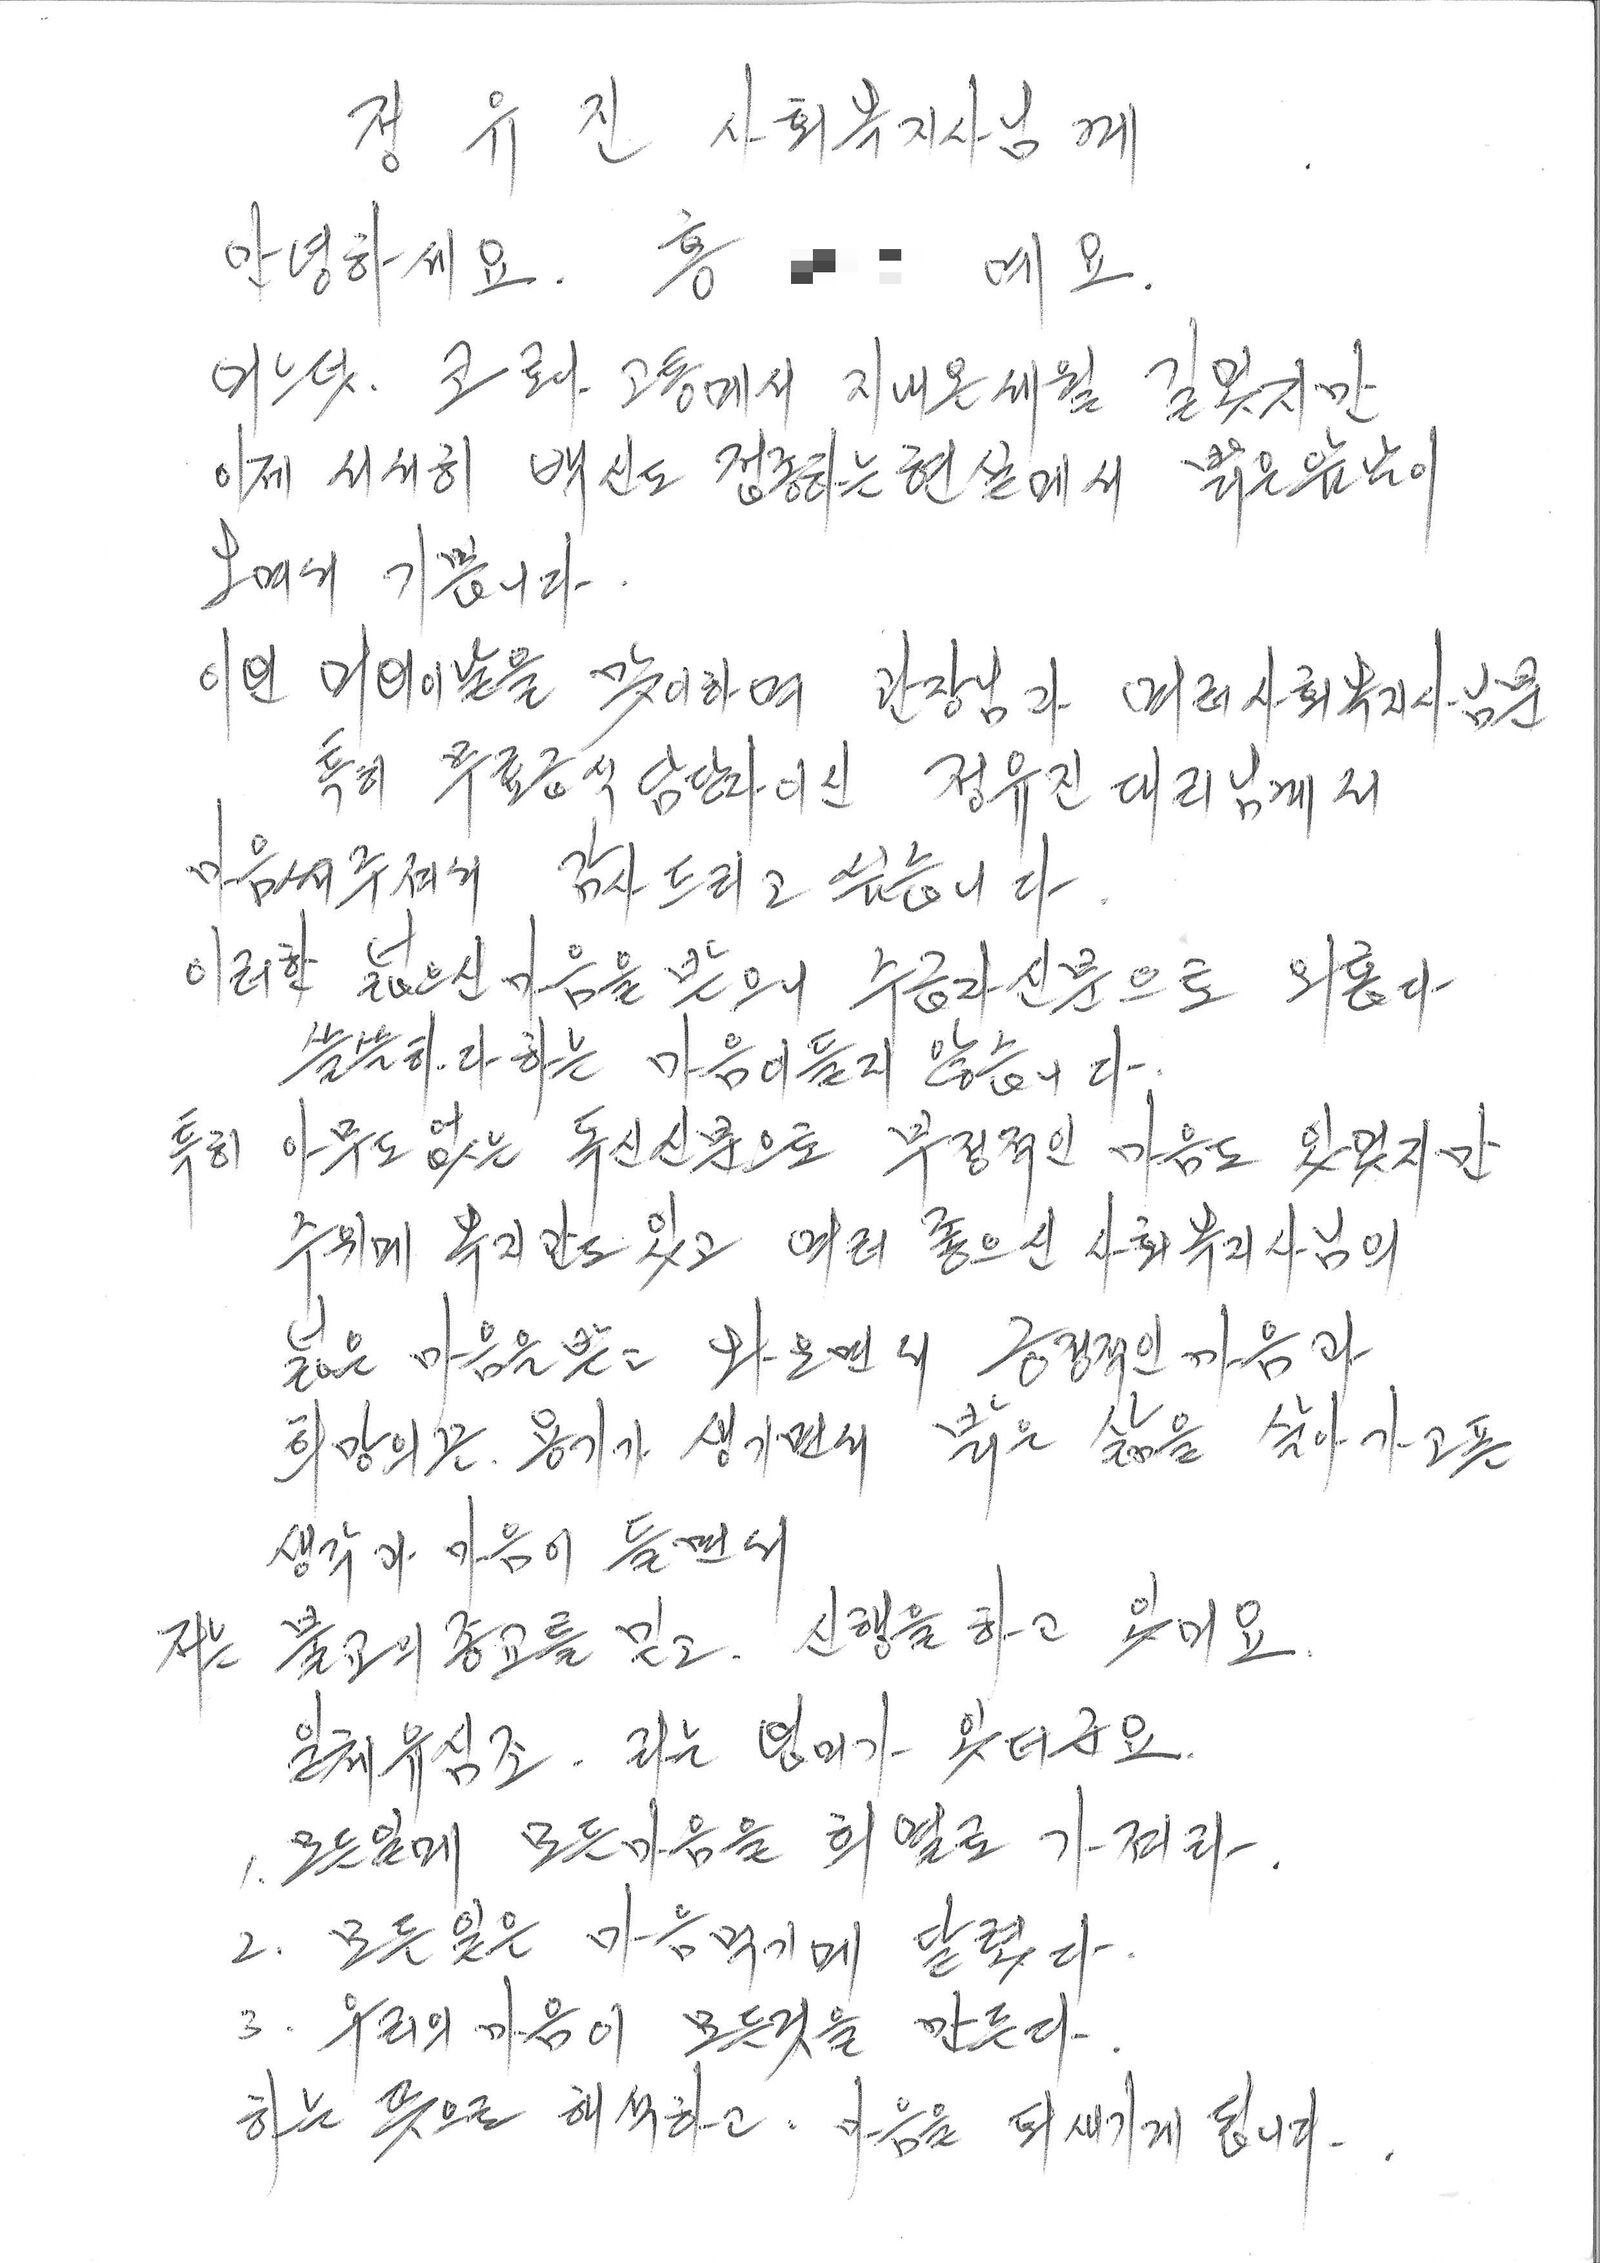 정 유 진 사회복지사님께
안녕하세요. 홍 예요.
어느덧. 코로나 고통에서 지내온세월 길었지만
이제 서서히 백신도 접종하는현실에서 밝은앞날이
오며서 기쁩니다.
이번 어버이날을 맞이하며 관장님과 여러사회복지사님분
특히 무료급식 담당자이신 정유진 대리님께서
마음써주셔서 감사드리고 싶습니다.
이러한 넓으신마음을받으니 수급자신분으로 외롭다
쓸쓸하.다하는 마음이들지 않습니다.
특히 아무도없는 독신신분으로 부정적인 마음도 있었지만
주위에 복지관도있고 여러 좋으신 사회복지사님의
넓은 마음을받고 와.오면서 긍정적인마음과
희망의끈. 용기가 생기면서 밝은 삶을 살아가고픈
생각과 마음이 들면서
저는 불교의종교를 믿고. 신행을하고 있어요.
일체유심조. 라는 염어가 있더군요.
1. 모든일에 모든마음을 희열로 가져라.
2. 모든일은 마음먹기에 달렸다.
3. 우리의마음이 모든것을 만든다.
하는 뜻으로 해석하고. 마음을 되새기게 됩니다.